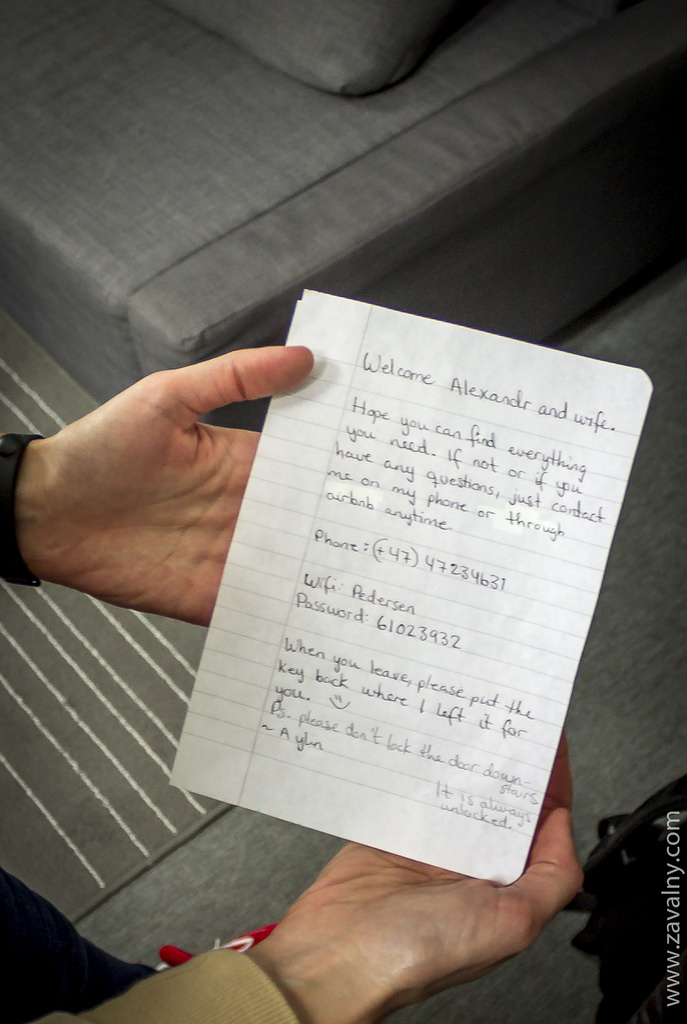 Welcome Alexandr and wife.
Hope you can find everything
you need. If not or if you
have any questions, just contact
me on my phone or through
airbnb anytime
Phone: (+47) 47234631
Wifi: Pedersen
Password: 61023932
When you leave, please put the
key back where I left it for
you.
Ps. please don't lock the door down-
stairs
~ Aylin
It is always
unlocked.
www.zavalny.com